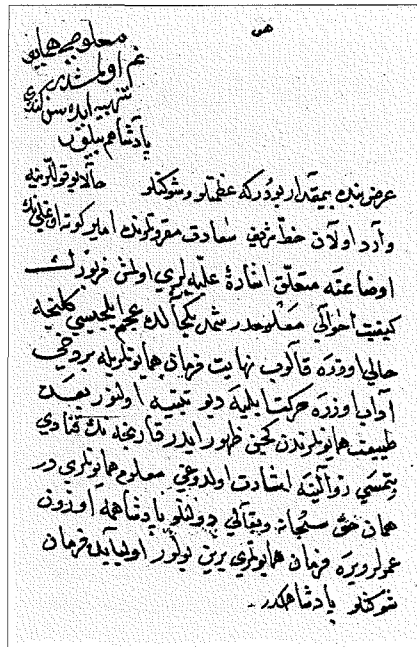 هو
معلوم همايونم
اولمشدر
تنبيه ايده سن كندي
پادشاهم بيلور
عرض بنده بيمقدار بودركه عظمتلو وشوكتلو حالا بو قوللرينه
وارد اولان خط شريف سعادت مقرونلرنده امير كونه اوغلينك
اوضاعنه متعلق اشارۀ عليه لري اولنمش
كيفيت احوالي معلومدر شمديكي حالده عجم ايلچيسي كلنجه
حالي اوزره قالوب نهايت فرمان همايونلريله بر وجهي
آداب اوزره حركت ايليه ديو تنبيه اولنور بعده
طبيعت همايونلرندن كچن ظهور ايدر قارنجه نك قنادي
بتمسي زوالينه اشارت اولدوغي معلوم همايونلري در
همان حق سبحانه وتعالي دولتلو پادشاهمه اوزون
عمرلر ويره فرمان همايونلري يرين بولور فرمان
شوكتلو پادشاهمكدر